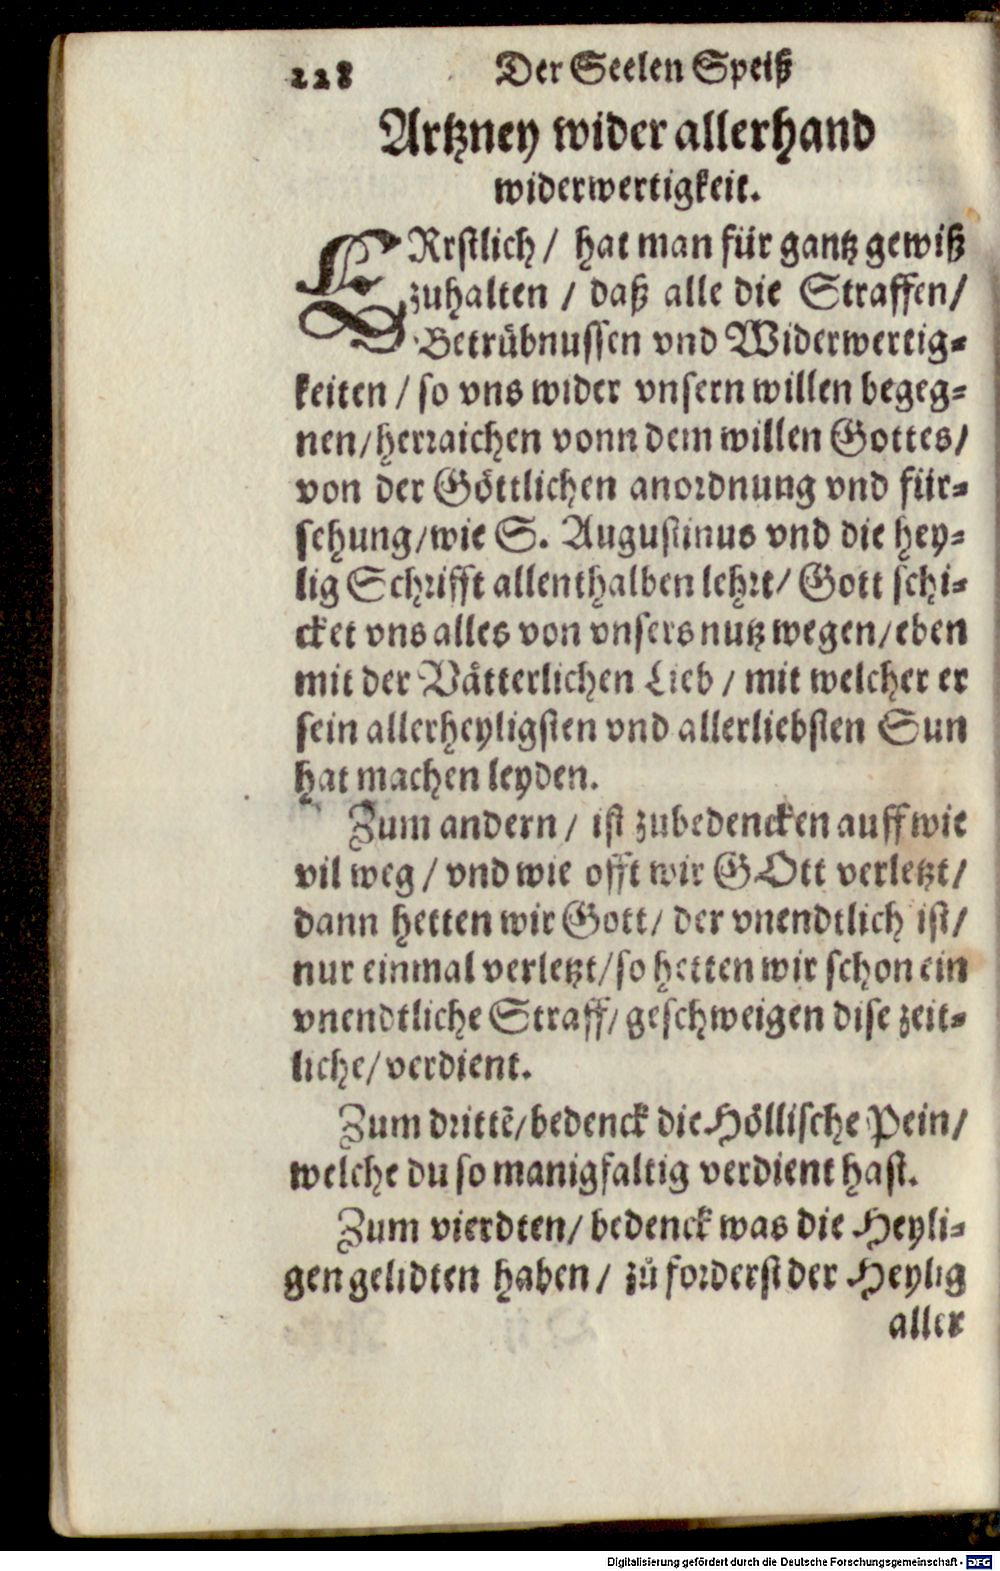 228 Der Seelen Speiß
Artzney wider allerhand
widerwertigkeit.
ERrstlich / hat man für gantz gewiß
zuhalten / daß alle die Straffen/
Betrübnussen vnd Widerwertig-
keiten / so vns wider vnsern willen begeg-
nen/herraichen vonn dem willen Gottes/
von der Göttlichen anordnung vnd für-
sehung/wie S. Augustinus vnd die hey-
lig Schrifft allenthalben lehrt/ Gott schi-
cket vns alles von vnsers nutz wegen/eben
mit der Vätterlichen Lieb / mit welcher er
sein allerheyligsten vnd allerliebsten Sun
hat machen leyden.
Zum andern / ist zubedencken auff wie
vil weg / vnd wie offt wir GOtt verletzt/
dann hetten wir Gott/ der vnendtlich ist/
nur einmal verletzt/so hetten wir schon ein
vnendtliche Straff/geschweigen dise zeit-
liche/verdient.
Zum drittẽ/bedenck die Höllische Pein/
welche du so manigfaltig verdient hast.
Zum vierdten/ bedenck was die Heyli-
gen gelidten haben / zů forderst der Heylig
aller
Digitalisierung gefördert durch die Deutsche Forschungsgemeinschaft - DFG